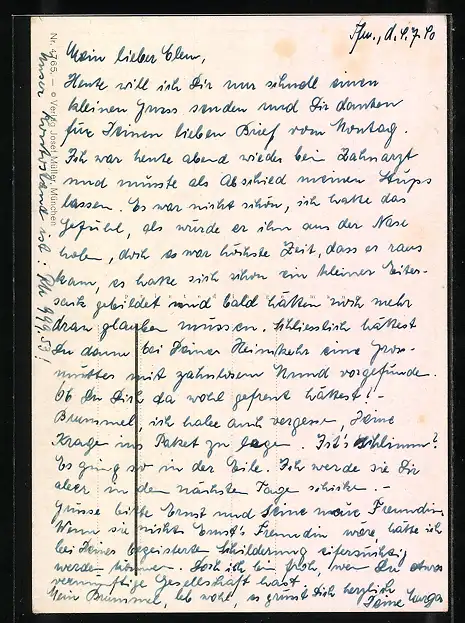 d. 4. 7. 40
Mein lieber
Heute will ich Dir nur schnell einen
kleinen Gruss senden und Dir danken
für Deinen lieben Brief vom Montag.
Ich war heute abend wieder bei Zahnarzt
und musste als Abschied meinen Stups
lassen. Es war nicht schön, ich hatte das
Gefühl, als würde er ihn aus der Nase
holen, doch es war höchste Zeit, dass er raus
kam, es hatte sich schon ein kleiner Eiter-
sack gebildet und bald hätten noch mehr
dran glauben müssen. Schliesslich hättest
Du dann bei Deiner Heimkehr eine Gross-
mutter mit zahnlosem Mund vorgefunden.
Ob Du Dich da wohl gefreut hättest! -
Brummel, ich habe auch vergessen, Deine
Krage ins Paket zu legen. Ist's schlimm?
Es ging so in der Eile. Ich werde sie Dir
aber in den nächsten Tagen schicken. -
Grüsse bitte Ernst und seine neue Freundin.
Wenn sie nicht Ernst's Freundin wäre, hätte ich
bei Deiner begeisterten Schilderung eifersüchtig
werden können. Doch ich bin froh, wenn Du etwas
vernünftige Gesellschaft hast.
Mein Brummel, leb wohl, es grüsst Dich herzlich
Deine
Nr. 4765. — © Verlag Josef Müller, München
ist: 99453!